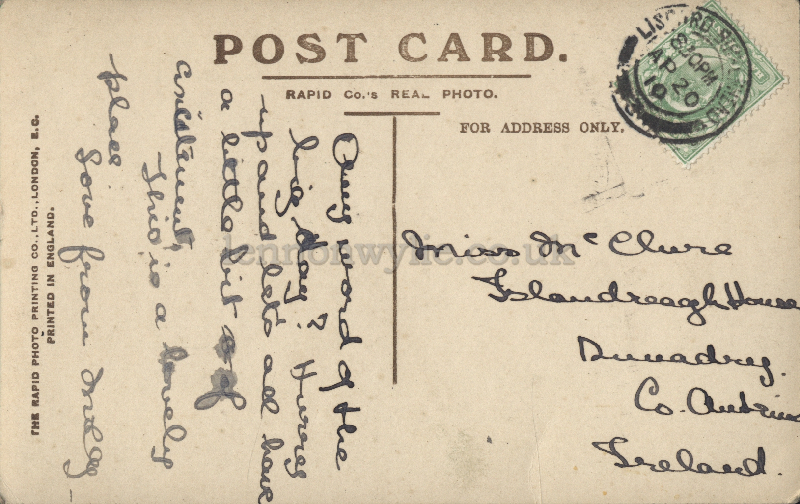 POST CARD.
RAPID Co.'s REAL PHOTO.
FOR ADDRESS ONLY.
THE RAPID PHOTO PRINTING CO., LTD., LONDON, E.C.
PRINTED IN ENGLAND.
Any word of the
big day? Hurry
up and let's all have
a little bit of
excitement,
This is a lovely
place
Love from
Miss McClure
Islandreagh House
Dunadry.
Co. Antrim
Ireland.
AP 20
10
lennonwylie.co.uk